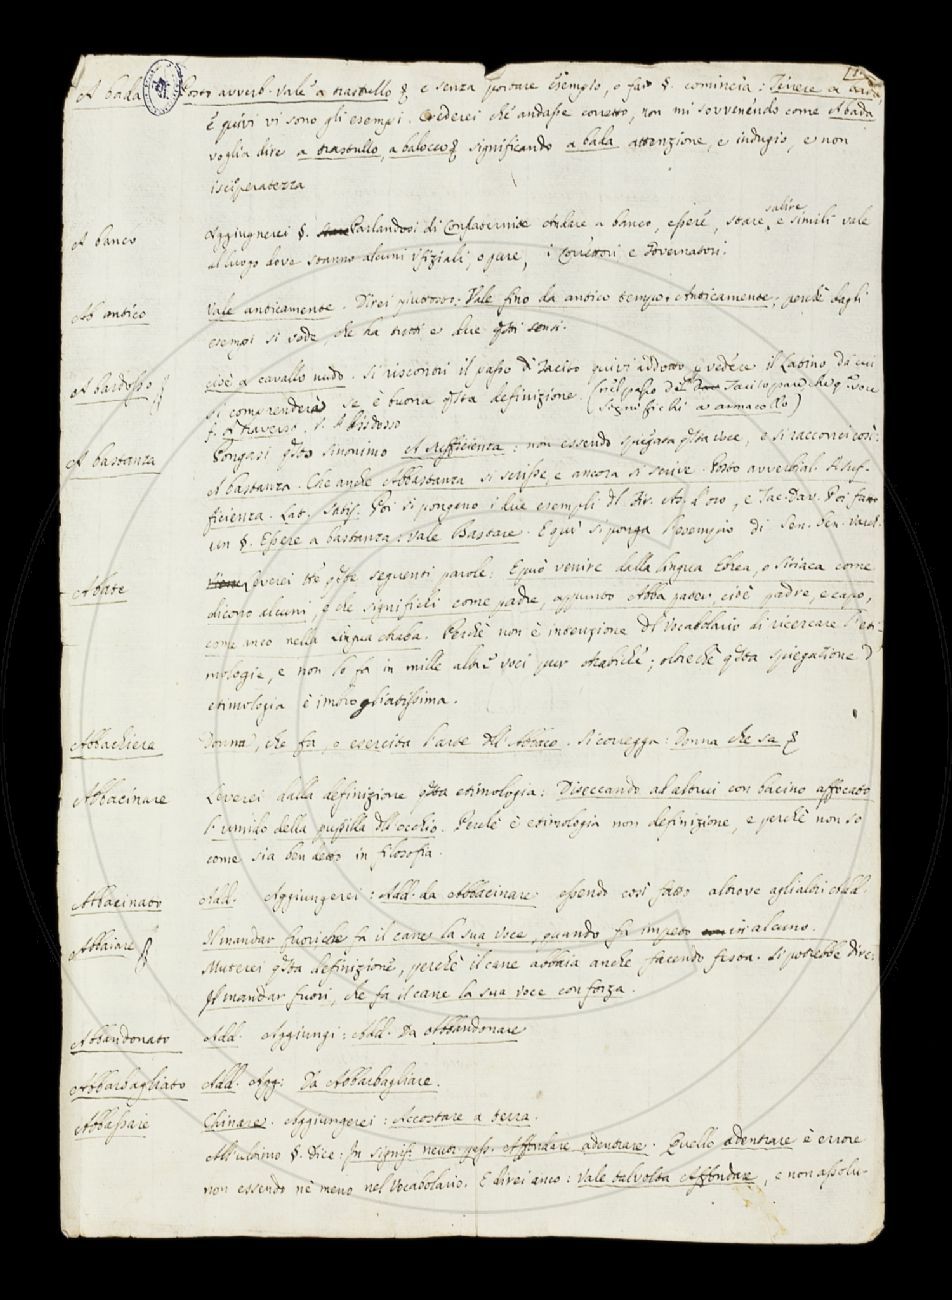 A bada Posto avverb. vale a trastullo & e senza portare esempio, o far §. comincia: Tenere a bada
E quivi vi sono gli esempi. Crederei che andasse corretto, non mi sovvenendo come A bada
voglia dire a trastullo, a balocco & significando a bada attenzione, e indugio, e non
isciperatezza
A banco Aggiugnerei §. Parlandosi di Confraternite Andare a banco, essere, stare, salire e simili vale
al luogo dove stanno alcuni ufiziali, o pure, i Correttori e Governatori.
Ab antico Vale anticamente. Direi piuttosto: Vale fino da antico tempo, Anticamente, perchè dagli
esempi si vede, che ha tutti e due qsti sensi.
A bardosso cioè a cavallo nudo. Si riscontri il passo di Tacito quivi addotto, e vedere il Latino da cui
si comprenderà se è buona qsta definizione. (nel passo del Tacito pare che q. voce
significhi a armacollo)
f. A traverso. V. A Bisdosso
A bastanza Pongasi qsto sinonimo A sufficienza: non essendo spiegata qsta voce, e si raccorrei così:
A bastanza. Che anche Abbastanza si scrisse, e ancora si scrive. Posto avverbial. A suf-
ficienza. Lat. Satis. Poi si pongono i due esempli di Fir. As. d'oro, e Tac. Dav. Poi fatto
un §. Essere a bastanza: vale Bastare. E qui si ponga l'esempio di Sen. Ben. Varch.
Abate Leverei tte qste seguenti parole: E può venire dalla lingua Ebrea, o Siriaca come
dicono alcuni, e che significhi come padre, appunto Abba pater, cioè padre, e capo,
come anco nella lingua Araba. Perchè non è intenzione dl Vocabolario di ricercare l'eti-
mologie, e non lo fa in mille altre voci pur Arabiche; oltrechè qsta spiegazione d'
etimologia è imbrogliatissima.
Abbachiera Donna, che fa, o esercita l'arte dll'Abbaco. Si corregga: Donna che sa &
Abbacinare Leverei dalla definizione qsta etimologia: Diseccando ad altrui con bacino affocato
l'umido della pupilla dll'occhio. Perchè è etimologia non definizione, e perchè non so
come sia ben detto in filosofia.
Abbacinato Add. Aggiungerei: Add. da Abbacinare essendo così fatto altrove agli altri Add.
Abbaiare Il mandar fuori che fa il cane la sua voce, quando fa impeto in alcuno.
Muterei qsta definizione, perchè il cane abbaia anche facendo festa. Si potrebbe dire:
Il mandar fuori, che fa il cane la sua voce con forza.
Abbandonato Add. Aggiungi: Add. Da Abbandonare
Abbarbagliato Add. Agg: Da Abbarbagliare.
Abbassare Chinare. Aggiungerei: Accostare a terra.
All'ultimo §. dice: In signif. neutr. pass. Affondare adentrare. Quello adentrare è errore
non essendo nè meno nel Vocabolario. E direi anco: Vale talvolta Affondare, e non assolu-